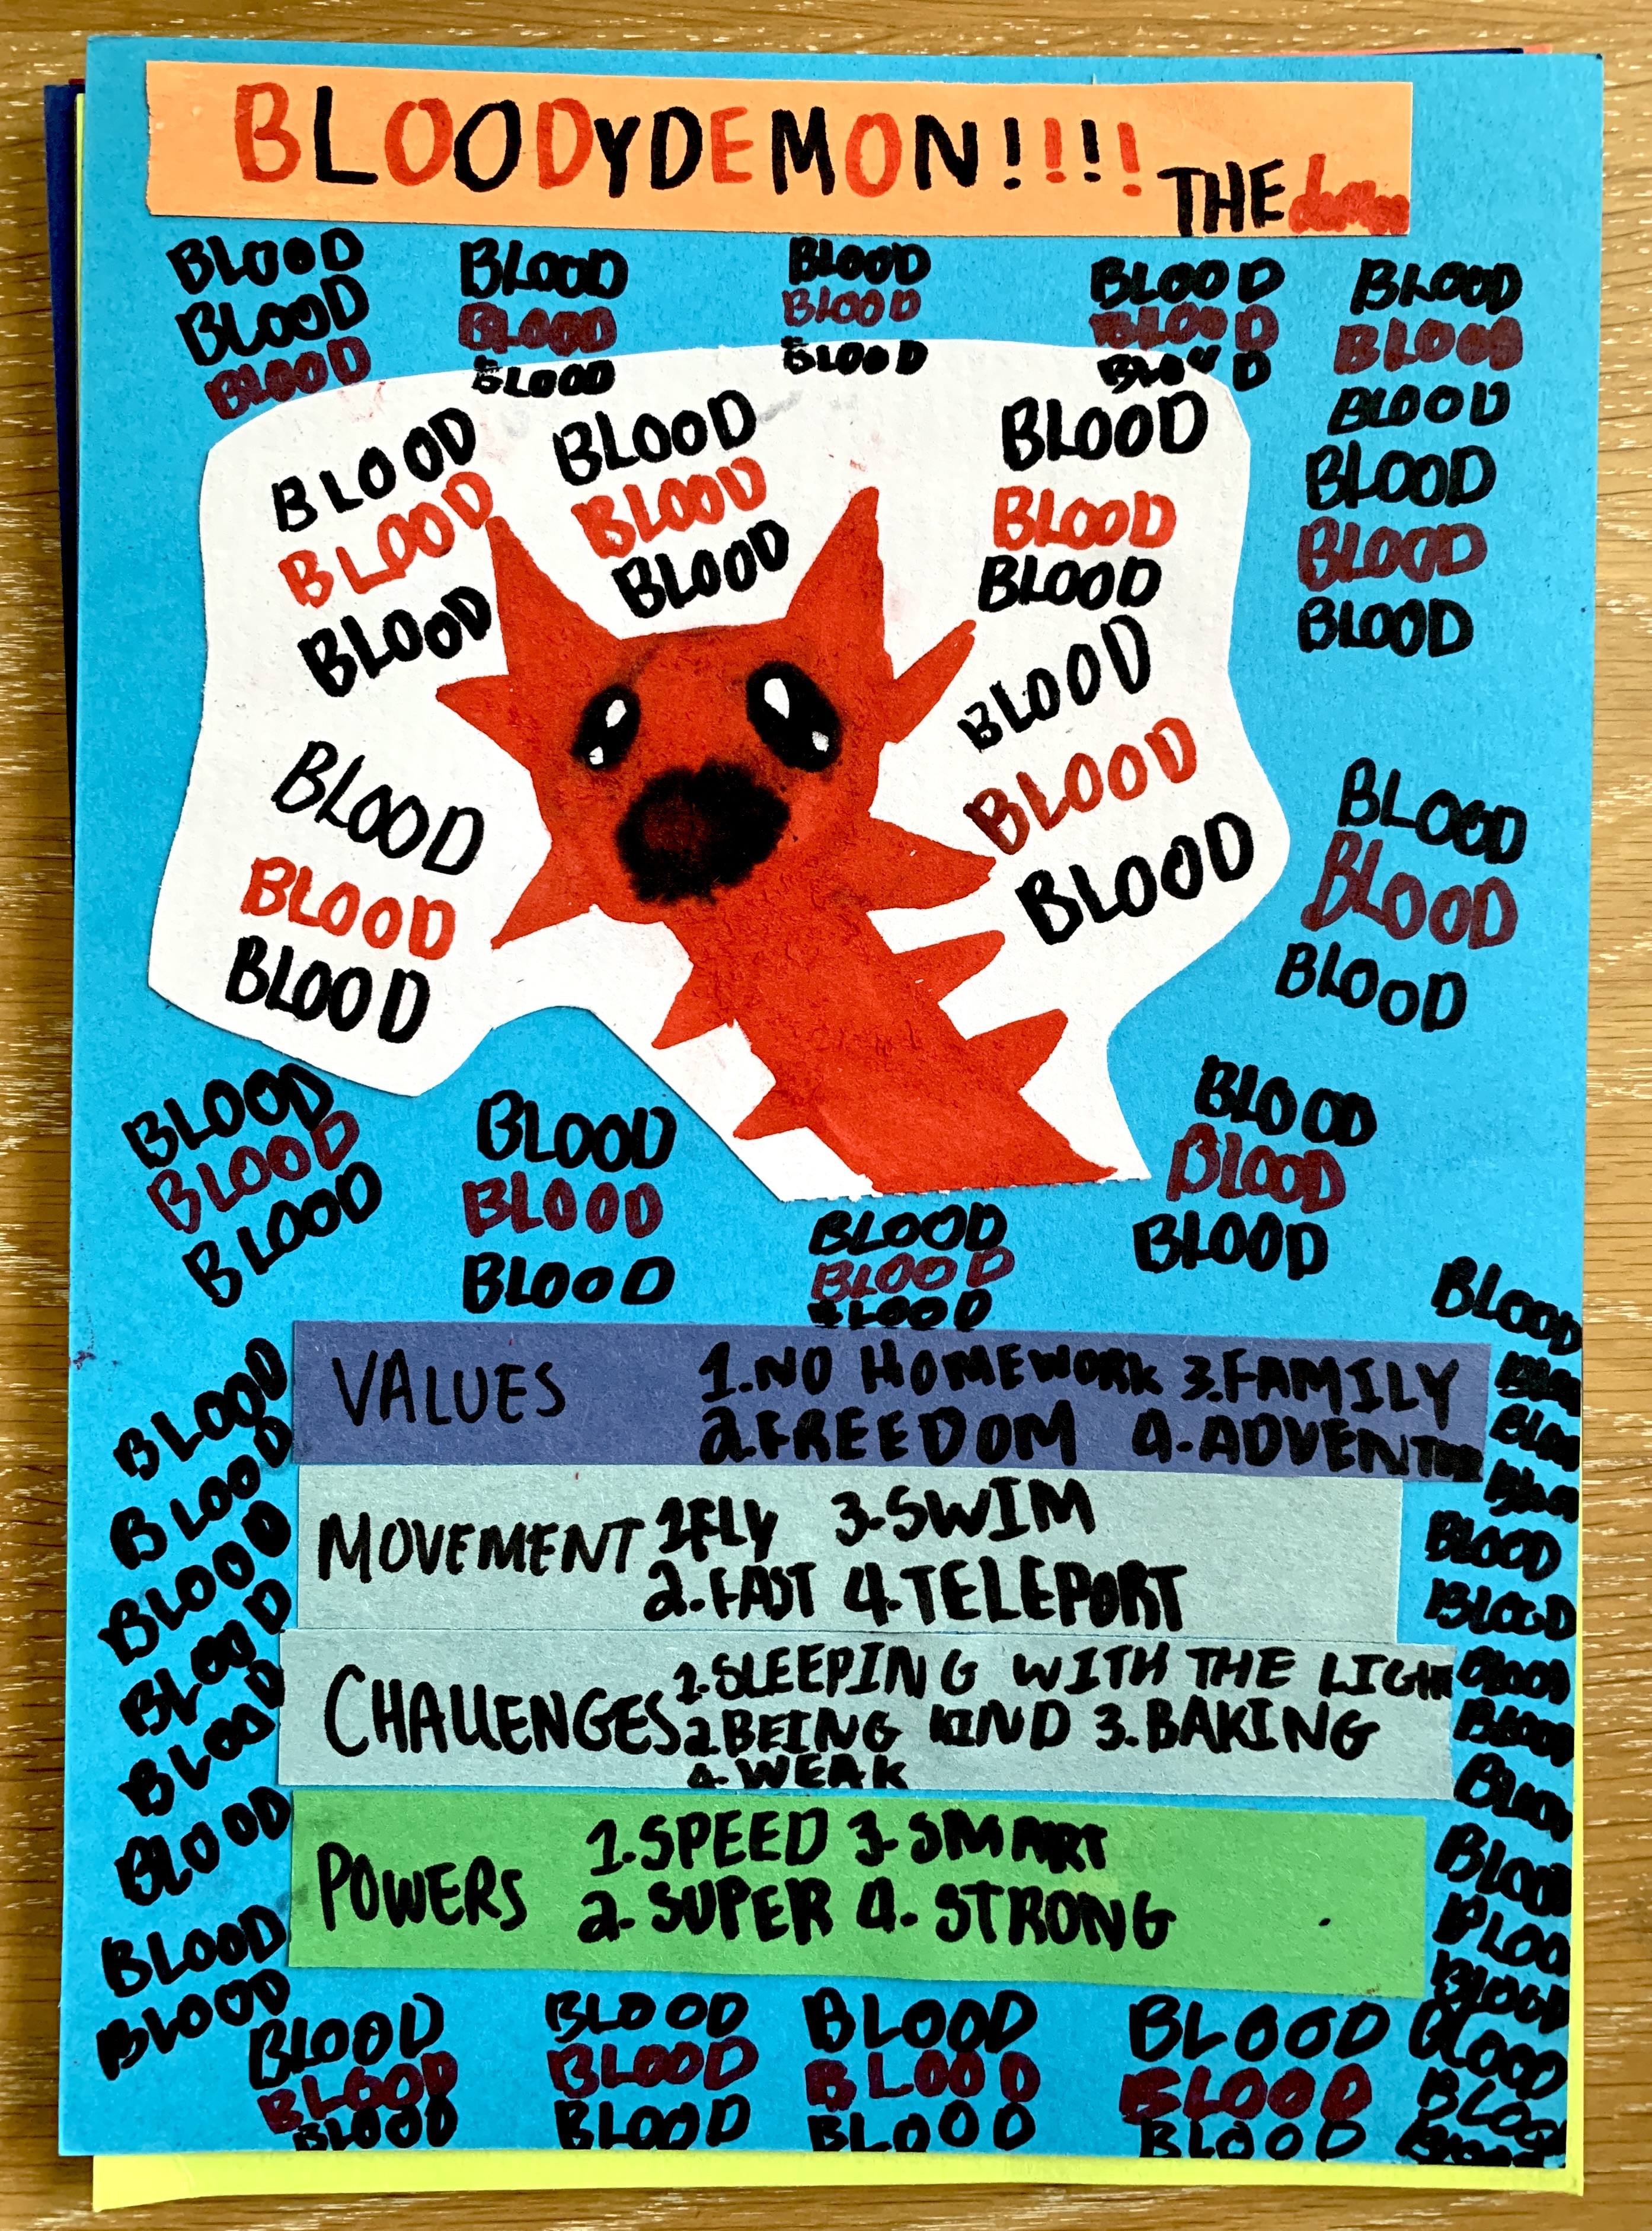 BLOODYDEMON!!!! THE
BLOOD BLOOD BLOOD BLOOD BLOOD
BLOOD BLOOD BLOOD BLOOD BLOOD
BLOOD BLOOD BLOOD BLOOD BLOOD
BLOOD BLOOD BLOOD BLOOD
BLOOD BLOOD BLOOD BLOOD
BLOOD BLOOD BLOOD BLOOD
BLOOD BLOOD BLOOD
BLOOD BLOOD BLOOD
BLOOD BLOOD BLOOD
BLOOD BLOOD BLOOD
BLOOD BLOOD BLOOD
BLOOD BLOOD BLOOD
BLOOD
BLOOD
BLOOD
BLOOD
VALUES 1.NO HOMEWORK 3.FAMILY
2.FREEDOM 4.
MOVEMENT 1.FLY 3.SWIM
2.FAST 4.TELEPORT
CHALLENGES 1.SLEEPING WITH THE LIGHT
2.BEING KIND 3.BAKING
4.WEAK
POWERS 1.SPEED 3.SMART
2.SUPER 4.STRONG
BLOOD
BLOOD
BLOOD
BLOOD
BLOOD
BLOOD
BLOOD
BLOOD
BLOOD
BLOOD
BLOOD
BLOOD
BLOOD
BLOOD
BLOOD BLOOD BLOOD BLOOD BLOOD
BLOOD BLOOD BLOOD BLOOD
BLOOD BLOOD BLOOD BLOOD